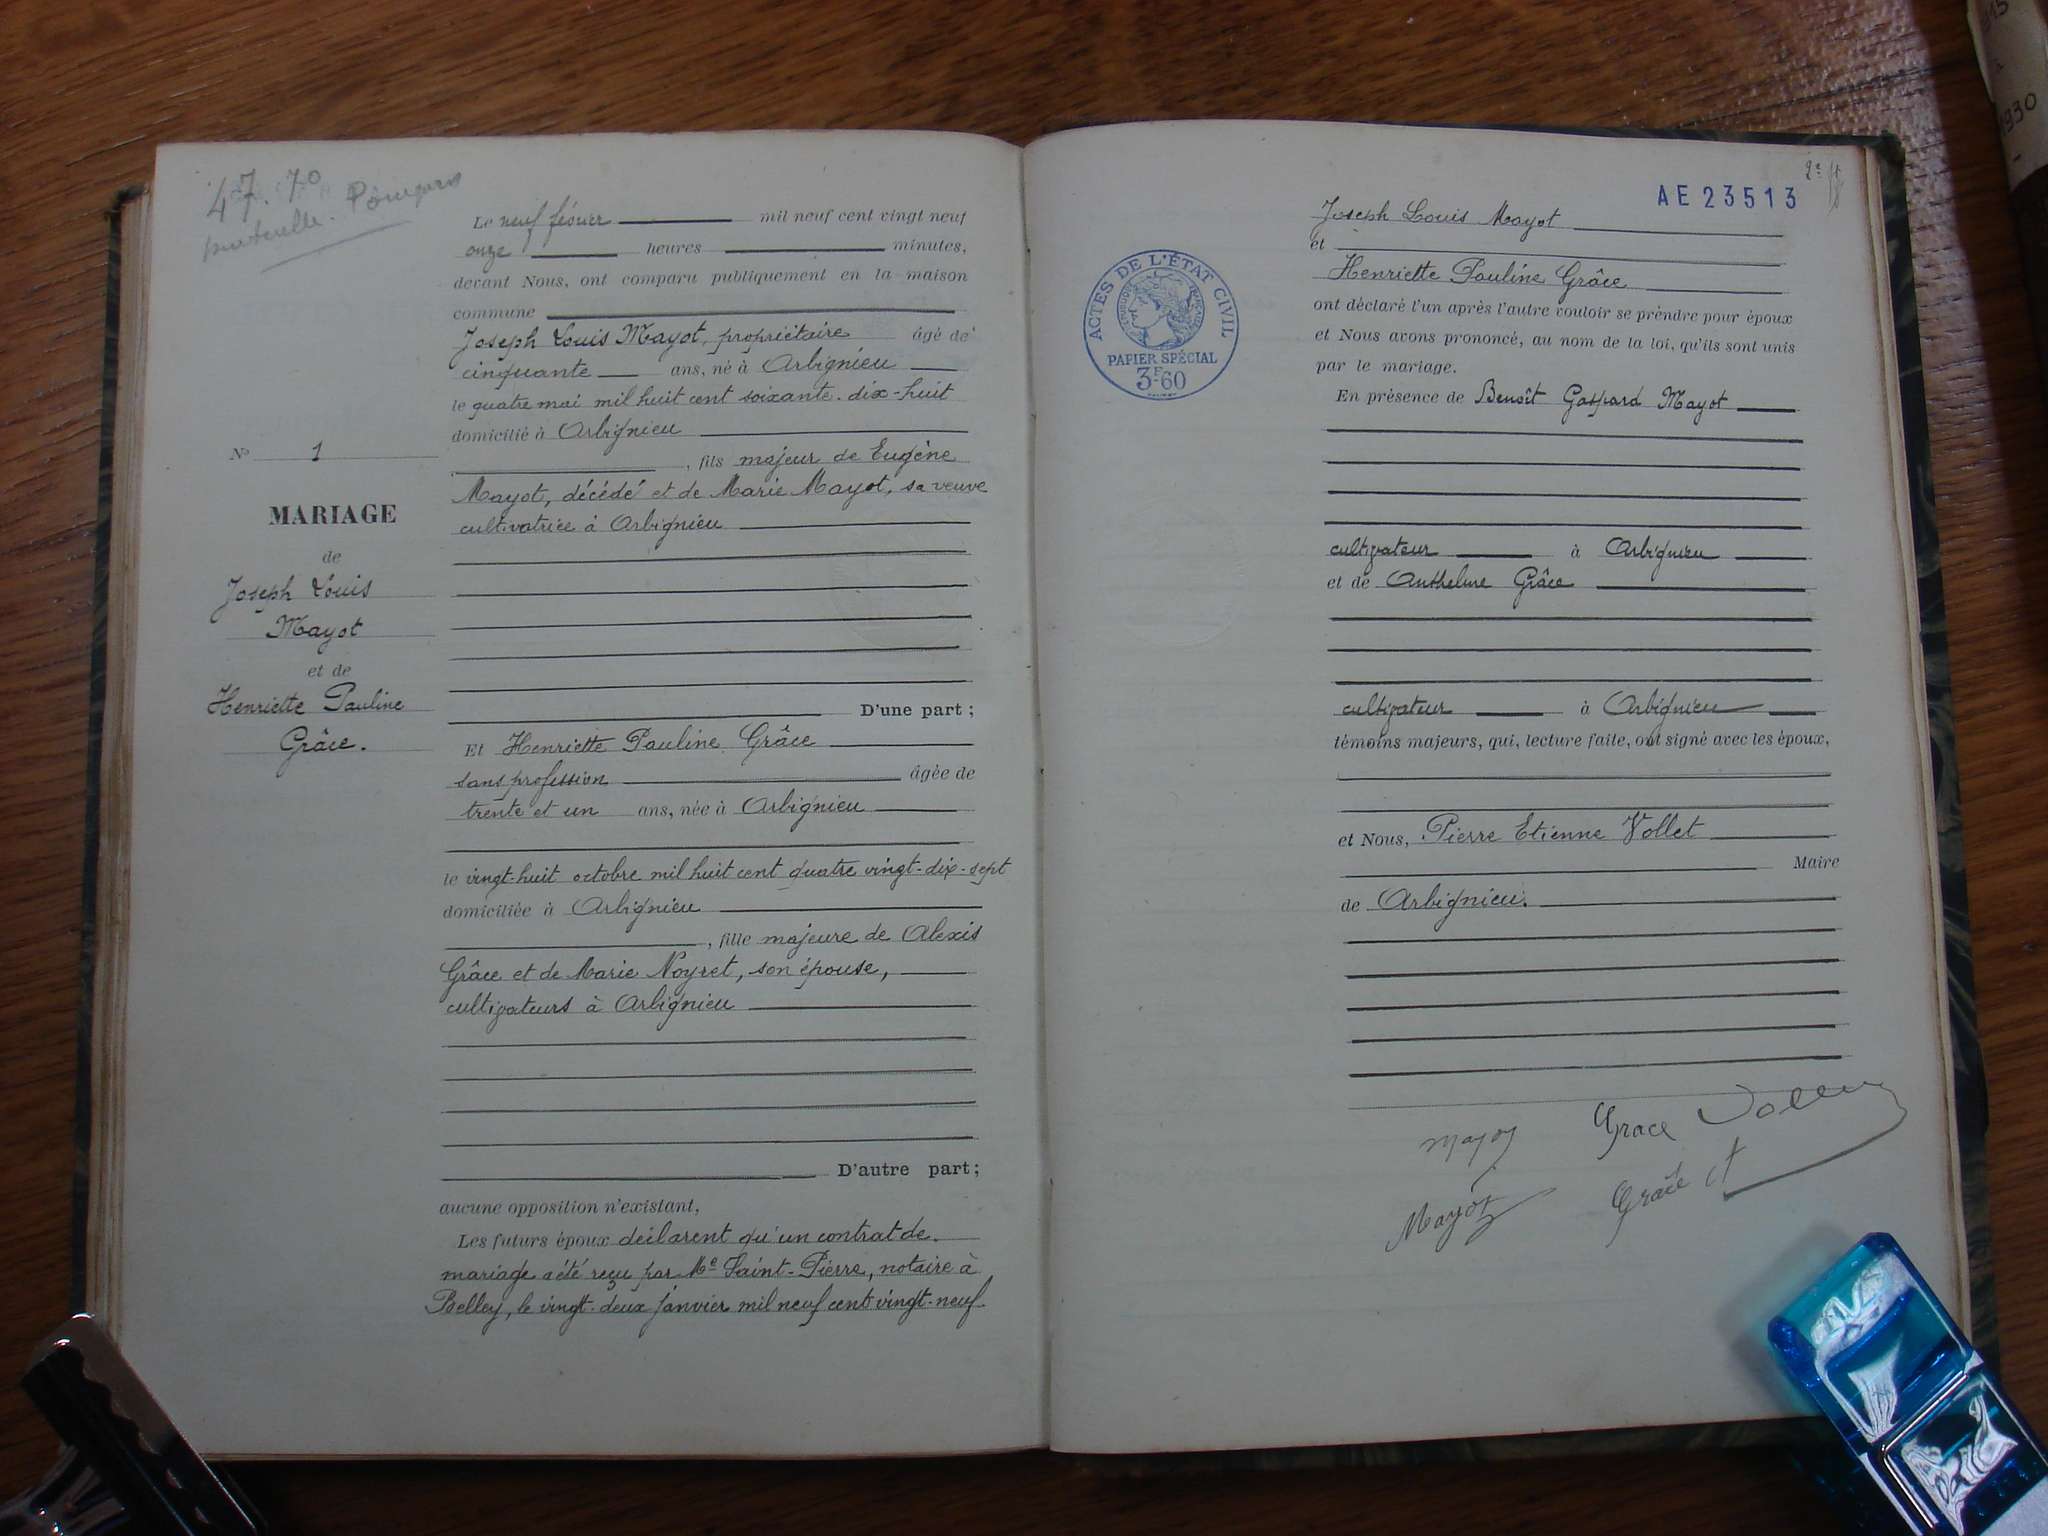 47. 70
Le neuf février mil neuf cent vingt neuf
onze heures minutes,
devant Nous, ont comparu publiquement en la maison
commune
Joseph Louis Mayot, propriétaire âgé de
cinquante ans, né à Arbignieu
le quatre mai mil huit cent soixante-dix-huit
domicilié à Arbignieu
, fils majeur de Eugène
Mayot, décédé et de Marie Mayot, sa veuve
cultivatrice à Arbignieu
D'une part;
Et Henriette Pauline Grâce
sans profession âgée de
trente et un ans, née à Arbignieu
le vingt-huit octobre mil huit cent quatre vingt-dix-sept
domiciliée à Arbignieu
, fille majeure de Alexis
Grâce et de Marie Noyret, son épouse,
cultivateurs à Arbignieu
D'autre part;
aucune opposition n'existant,
Les futurs époux déclarent qu'un contrat de
mariage a été reçu par Me Saint-Pierre, notaire à
Belley, le vingt-deux janvier mil neuf cent vingt-neuf
No 1
MARIAGE
de
Joseph Louis
Mayot
et de
Henriette Pauline
Grâce.
2e
AE 23513
ACTES DE L'ÉTAT CIVIL
PAPIER SPÉCIAL
3F60
Joseph Louis Mayot
et
Henriette Pauline Grâce
ont déclaré l'un après l'autre vouloir se prendre pour époux
et Nous avons prononcé, au nom de la loi, qu'ils sont unis
par le mariage.
En présence de Benoît Gaspard Mayot
cultivateur à Arbignieu
et de Anthelme Grâce
cultivateur à Arbignieu
témoins majeurs, qui, lecture faite, ont signé avec les époux,
et Nous, Pierre Etienne Vollet
Maire
de Arbignieu.
Mayot Grace Vollet
Mayot Grâce A
1930